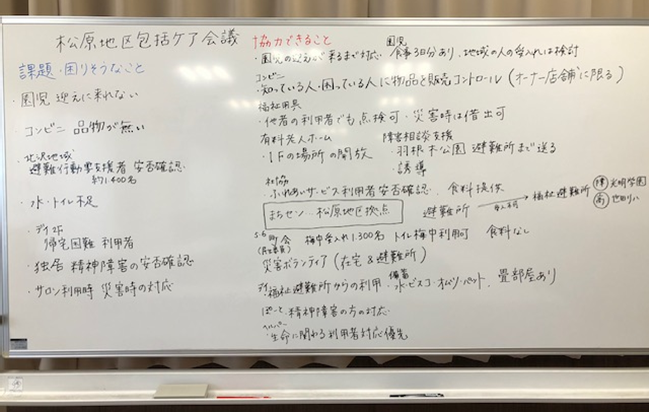 松原地区包括ケア会議
課題・困りそうなこと
・園児 迎えに来れない
コンビニ 品物が無い
・北沢地域
避難行動要支援者 安否確認
約1400名
・水・トイレ不足
・デイ
帰宅困難 利用者
・独居 精神障害の安否確認
・サロン利用時 災害時の対応
協力できること
園児
・園児の迎えが来るまで対応 食事3日分あり、地域の人の受入れは検討
コンビニ
・知っている人・困っている人に物品を販売コントロール(オーナー店舗に限る)
福祉用具
・他者の利用者でも点検可・災害時は借出可
有料老人ホーム
・1Fの場所の開放
障害相談支援
・羽根木公園 避難所まで送る
・誘導
社協
・ふれあいサービス利用者安否確認、食料提供
まちセン…松原地区拠点
避難所 → 福祉避難所
受入不可
光明学園
町会
(民生委員)
梅中受入れ1.300名 トイレ梅中利用可 食料なし
災害ボランティア(在宅&避難所)
デイ
・福祉避難所からの利用 備蓄 水・ビスコ・オムツ・パット、畳部屋あり
ぽーと
・精神障害の方の対応
ヘルパー
・生命に関わる利用者対応優先